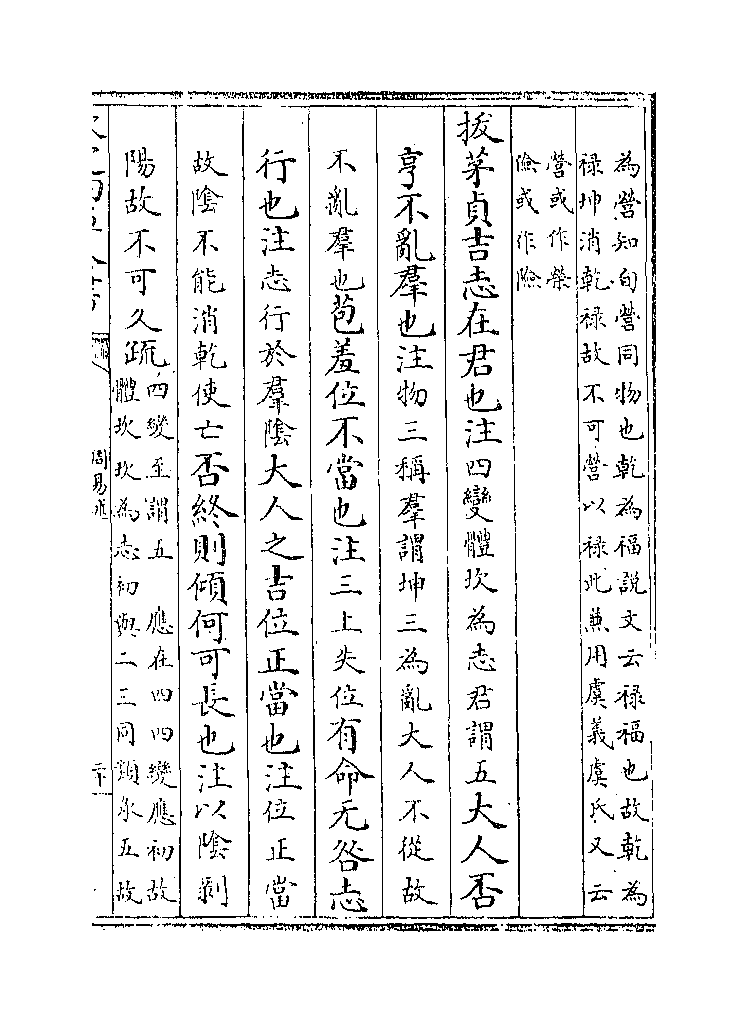 為營知旬營同物也乾為福說文云禄福也故乾為
禄坤消乾禄故不可營以禄此兼用虞義虞氏又云
營或作榮
儉或作險
拔茅貞吉志在君也注四變體坎為志君謂五大人否
亨不亂羣也注物三稱羣謂坤三為亂大人不從故
不亂羣也苞羞位不當也注三上失位有命无咎志
行也注志行於羣陰大人之吉位正當也注位正當
故陰不能消乾使亡否終則傾何可長也注以陰剝
陽故不可久疏
四變至謂五 應在四四變應初故
體坎坎為志初與二三同類承五故
周易述
二十